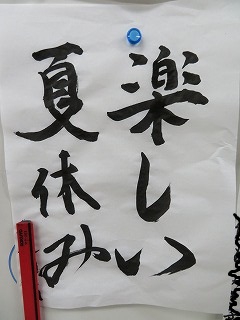 楽しい
夏休み